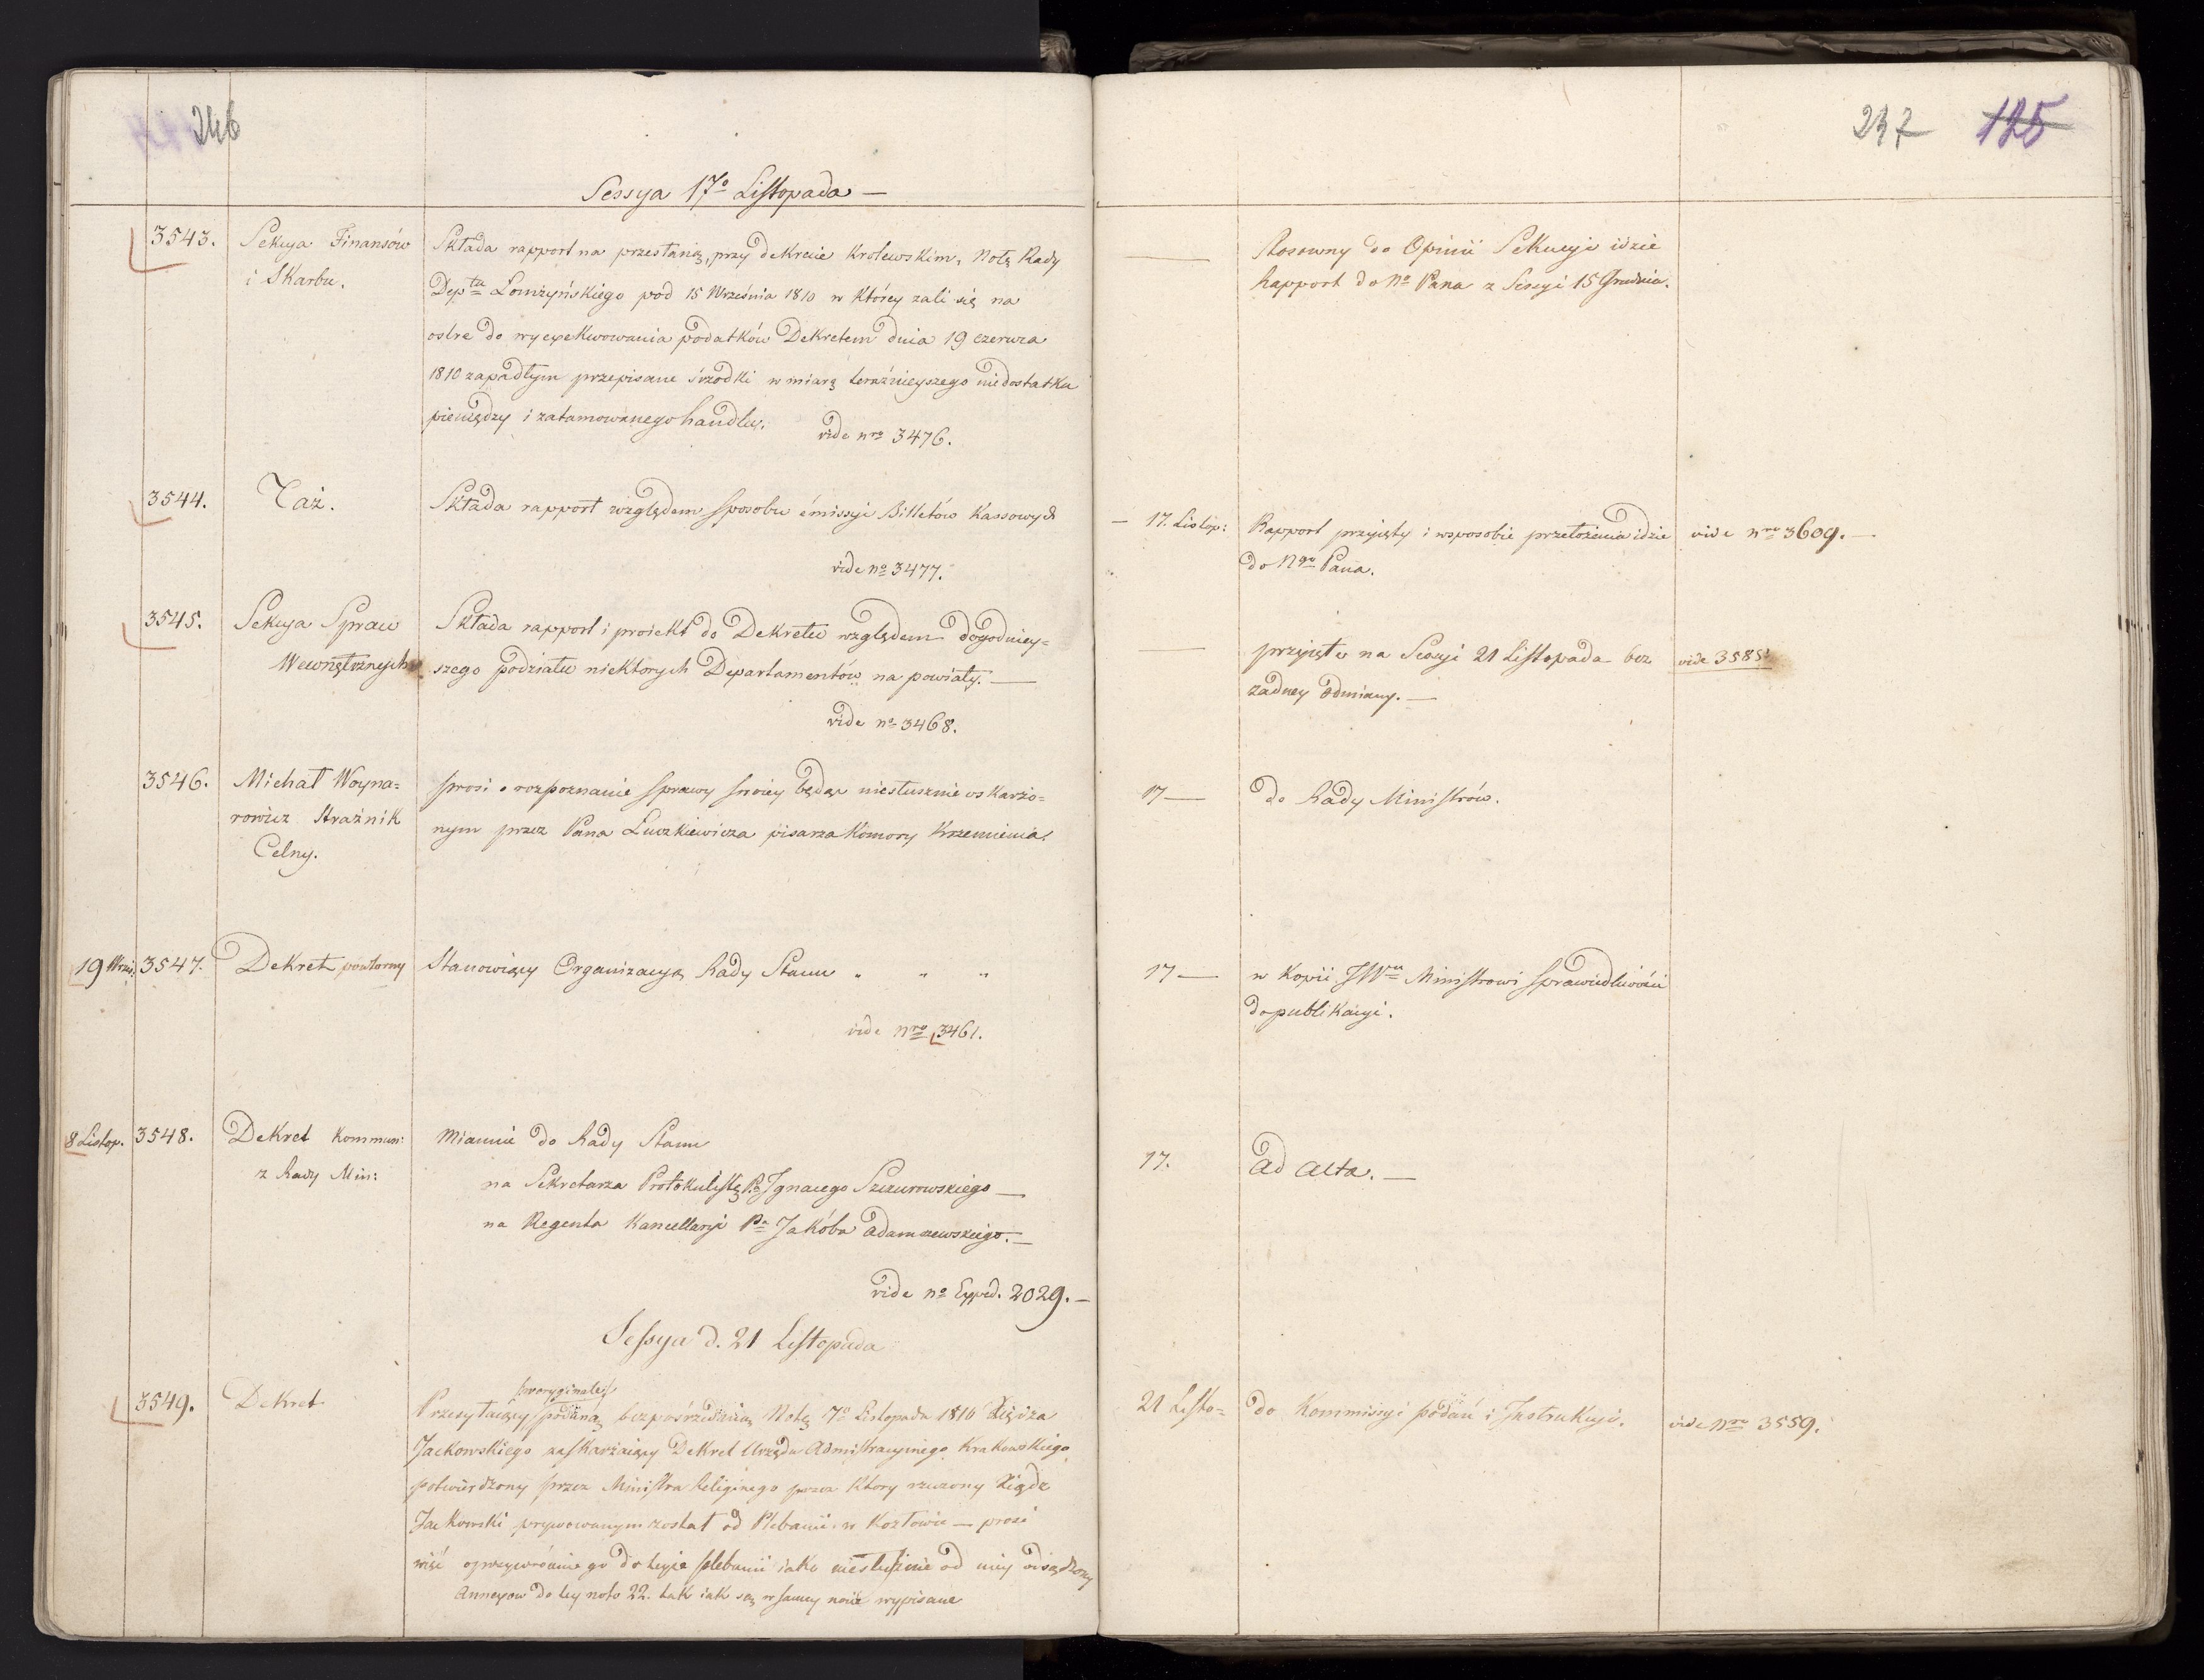 246
Sessya 17o Listopada —
3543. Sekcya Finansów
i Skarbu.
Składa rapport na przesłaną, przy dekrecie Krolewskim, Notę Rady
Depta Łomżyńskiego pod 15 Września 1810 w którey zali się na
ostre do wyexekwowania podatków Dekretem dnia 19 czerwca
1810 zapadłym przepisane śrzodki w miarę teraźnieyszego niedostatku
pieniędzy i zatamowanego handlu.
vide nro 3476.
3544. Taż.
Składa rapport względem sposobu emissyi Billetów Kassowych
vide no 3477.
3545. Sekcya Spraw
Wewnętrznych
Składa rapport i proiekt do Dekretu względem dogodniey-
szego podziału niektorych Departamentów na powiaty. —
vide no 3468.
3546. Michał Woyna-
rowicz Strażnik
Celny.
prosi o rozpoznanie sprawy swoiey będąc niesłusznie oskarżo-
nym przez Pana Luczkiewicza pisarza Komory Krzemienia.
19 Wrześ. 3547. Dekret powtorny
Stanowiący Organizacyą Rady Stanu " " "
vide nro 3461.
8 Listop. 3548. Dekret kommun:
z Rady Min:
Mianuie do Rady Stanu
na Sekretarza Protokulistę Pa Ignacego Szczurowskiego —
na Regenta Kancellaryi Pa Jakóba Adamczewskiego. —
vide no Exped. 2029. —
Sessya d. 21 Listopada
3549. Dekret
w oryginale
Przesyłaiący podaną bezpośrzednią Notę 7o Listopada 1810 Xiędza
Jackowskiego zaskarżaiący Dekret Urzędu Admistracyinego Krakowskiego
potwierdzony przez Ministra Religinego przez Ktory rzeczony Xiądz
Jackowski prywowanym został od Plebanii w Kozłowie — prosi
więc o przywrócenie go do teyże plebanii iako niesłusznie od niey odsądzony
Annexow do tey noto 22. tak iak są w samey nocie wypisane
247 125
Stosowny do Opinii Sekcyi idzie
Rapport do No Pana z Sessyi 15 Grudnia.
— 17. Listop: Rapport przyięty i w sposobie przełożenia idzie
do Ngo Pana.
vide nro 3609. —
przyięte na Sessyi 21 Listopada bez
żadney odmiany. —
vide 3585
17 — do Rady Ministrów.
17 — w Kopii JWmu Ministrowi Sprawiedliwości
do publikacyi.
17. ad acta. —
21 Listo- do Kommissyi podań i Instrukcyi.
vide Nro 3559.